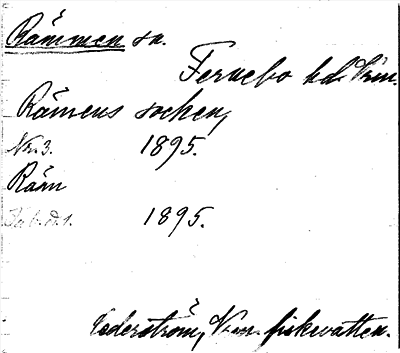 Rämmen sn.
Fernebo hd. Vrm.
Rämens socken,
No. 3. 1895.
Räm
1895.
Cederström, Vrm. fiskvatten.